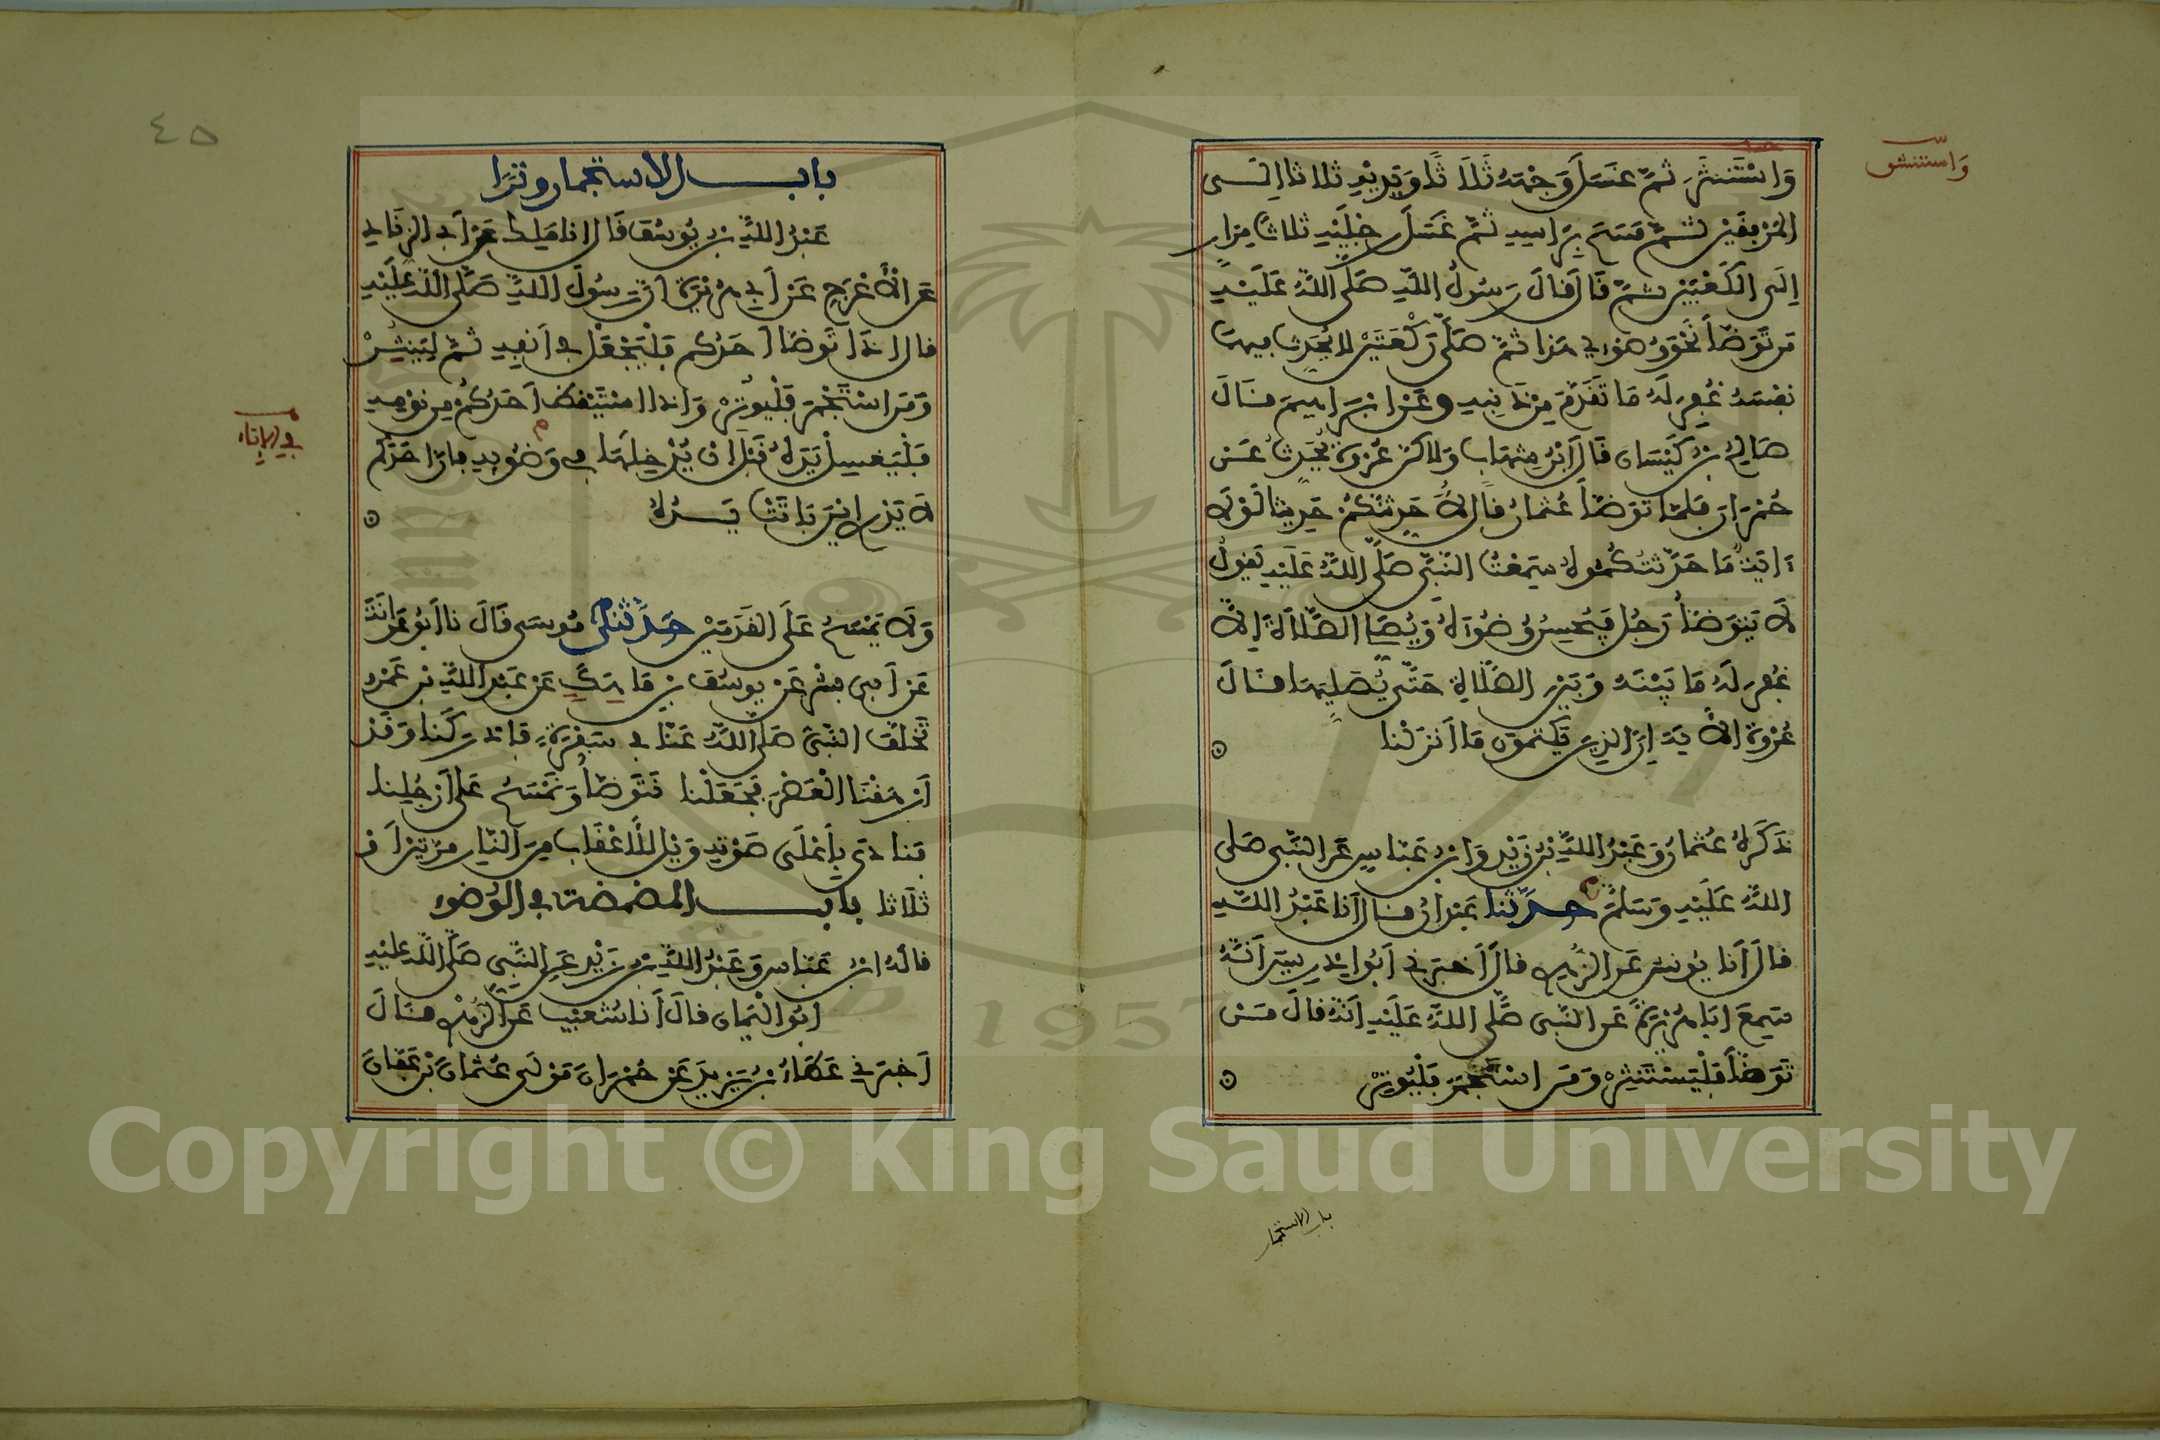 وَاسْتَنْثَرَ ثُمَّ غَسَلَ وَجْهَهُ ثَلَاثًا وَيَدَيْهِ ثلاثا إلى
المرفقين ثم مسح براسه ثم غسل رجليه ثلاث مرار
إلى الكعبين ثم قال قال رسول الله صلى الله عليه
من توضأ نحو وضوءي هذا ثم صلى ركعتين لا يحدث فيهما
نفسه غفر له ما تقدم من ذنبه وعن ابراهيم قال
صالح بن كيسان قال ابن شهاب ولاكن عروة يحدث عن
حمران فلما توضأ عثمان قال الا احدثكم حديثا لولا
اية ما حدثتكموه سمعت النبي صلى الله عليه يقول
لا يتوضأ رجل فيحسن وضوءه ويصلي الصلاة إلا
غفر له ما بينه وبين الصلاة حتى يصليها قال
عروة الأية إن الذين يكتمون ما أنزلنا
ذكره عثمان وعبد الله بن زيد وابن عباس عن النبي صلى
الله عليه وسلم حدثنا عبدان قال أنا عبد الله
قال أنا يونس عن الزهري قال أخبرني أبو إدريس أنه
سمع ابا هريرة عن النبي صلى الله عليه أنه قال من
توضأ فليستنثر ومن استجمر فليوتر
وَاستنشق
باب الاستجمار
٤٥
باب الاستجمار وترا
عبد الله بن يوسف قال انا ملك عن أبي الزناد
عن الأعرج عن أبي هريرة أن رسول الله صلى الله عليه
قال إذا توضأ أحدكم فليجعل في أنفه ثم لينثر
ومن استجمر فليوتر وإذا استيقظ أحدكم من نومه
فليغسل يده قبل ان يدخلها في وضوءه فإن أحدكم
لا يدري اين باتت يده
ولا يمسح على القدمين حدثني موسى قال نا أبو عوانة
عن أبي بشر عن يوسف بن ماهك عن عبد الله بن عمرو
تخلف النبي صلى الله عنا في سفرة فادركنا وقد
أرهقنا العصر فجعلنا نتوضأ ونمسح على أرجلنا
فنادى بأعلى صوته ويل للأعقاب من النار مرتين أو
ثلاثا باب المضمضة في الوضوء
قاله ابن عباس وعبد الله بن زيد عن النبي صلى الله عليه
أبو اليمان قال أنا شعيب عن الزهري قال
أخبرني عطاء بن يزيد عن حمران مولى عثمان بن عفان
في الإناء
Copyright © King Saud University
1957